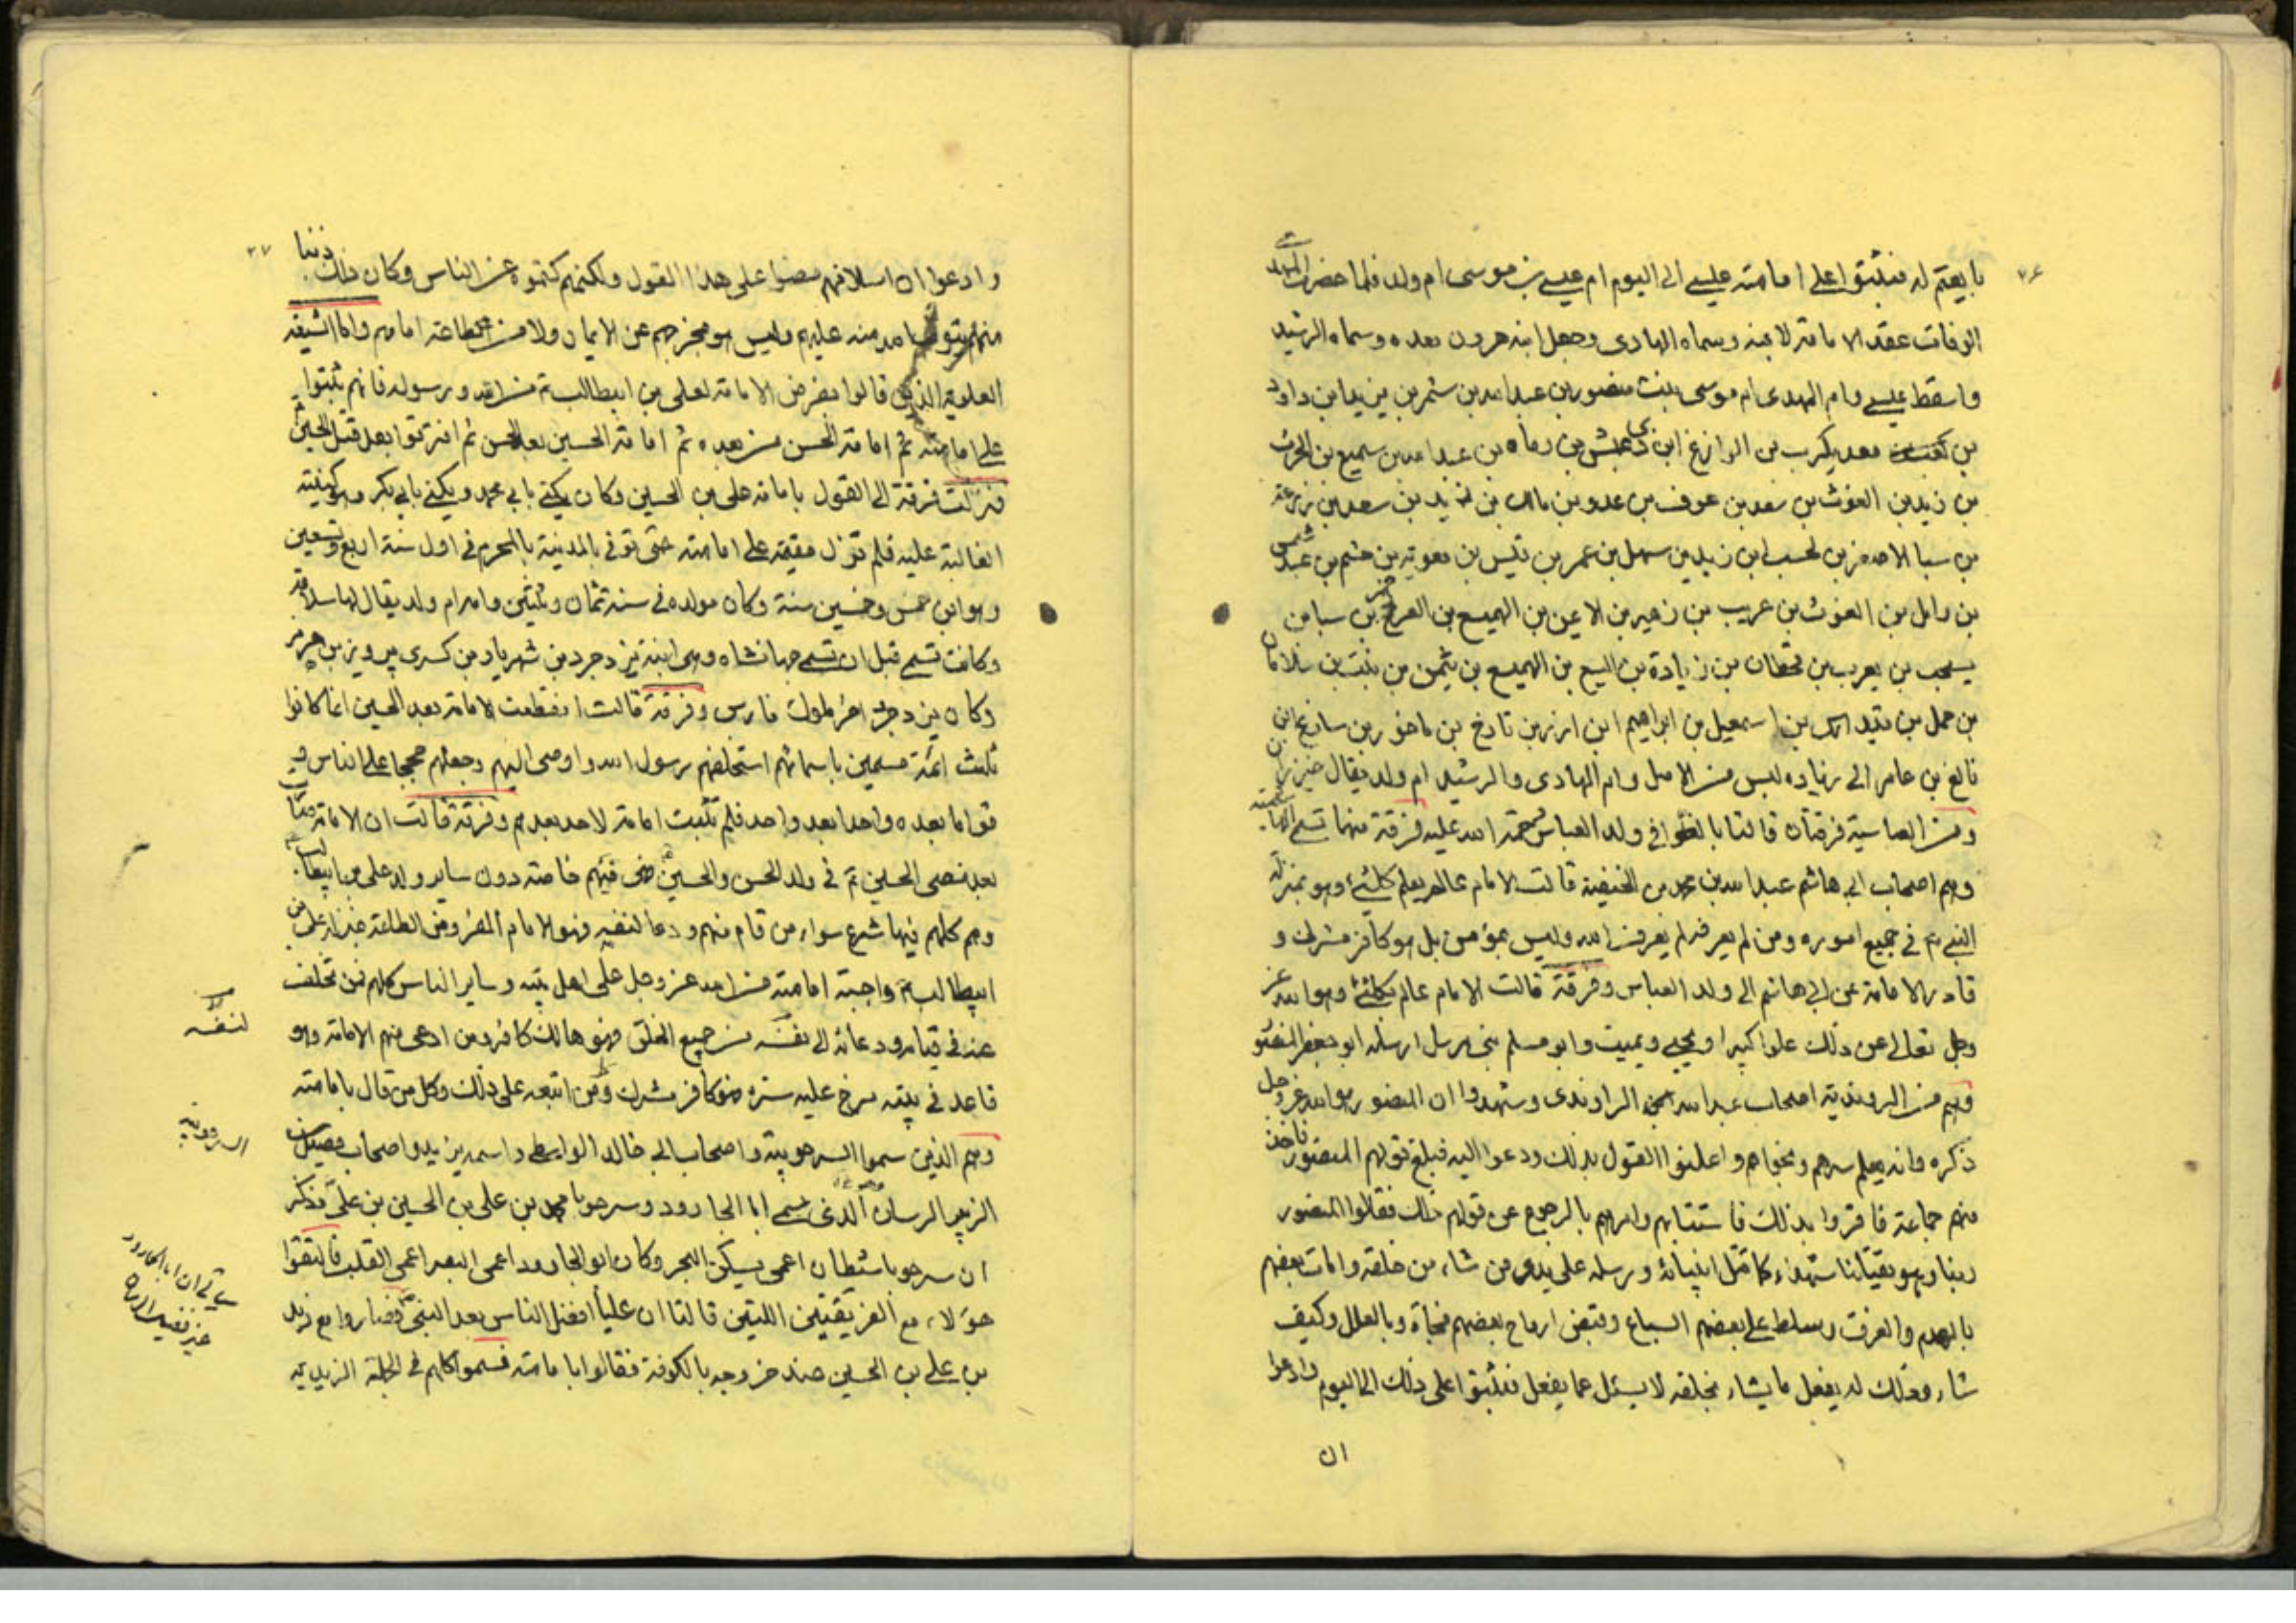 ٣٦
بايعتم له فثبتوا على امامته عليسے الى اليوم ام عيسے بن موسى ام ولد فلما حضرت المهدى
الوفات عقد الامامة لابنه وسماه الهادى وجعل ابنه هرون بعده وسماه الرشيد
واسقط عيسے وام المهدى ام موسى بنت منصور بن عبدالله بن شمر بن يزيد ابن داود
بن معديكرب بن الوازع ابن ذى عيش بن وماه بن عبدالله بن سميع بن الحرث
بن زيد بن الغوث بن سعد بن عوف بن عدو بن مالك بن زيد بن سعد بن زرعة
بن سبا الاصغر بن لحسب ابن زيد بن سهل بن عمر بن قيس بن معوية بن جشم بن عبد شمس
بن وايل بن الغوث بن عريب بن زهير بن الاعين بن الهميع بن العرنج بن سبا من
يسحب بن يعرب بن قحطان بن زيادة بن اليسع بن الهميسع بن يثمن بن بنت بن سلامان
بن حمل بن قيدار بن اسمعيل بن ابراهيم ابن ازر بن تارخ بن ماخور بن سارغ ابن
فالغ بن عامر الى زياده ليس من الاصل وام الهادى والرشيد ام ولد يقال خيزران
ومن العباسية فرقتان قالتا بالغلو فى ولد العباس رحمة الله عليه فرقة منهما تسمى الهاشمية
وهم اصحاب ابى هاشم عبدالله بن محمد بن الحنفية قالت الامام عالم يعلم كل شئ وهو بمنزلة
النبى ع فى جميع اموره ومن لم يعرفه لم يعرف الله وليس بمؤمن بل هو كافر مشرك و
قادر الامامة عن ابى هاشم الى ولد العباس وفرقة قالت الامام عالم بكل شئ وهو الله عز
وجل تعالى عن ذلك علوا كبيرا ويحيى ويميت وابو مسلم نبى مرسل ارسله ابو جعفر المنصور
وهم من الروندية اصحاب عبدالله الراوندى وشهدوا ان المنصور هو الله عز وجل
ذكره وانه يعلم سرهم ونجواهم واعلنوا القول بذلك ودعوا اليه فبلغ قولهم المنصور فاخذ
منهم جماعة فاقروا بذلك فاستتابهم وامرهم بالرجوع عن قولهم ذلك فقالوا المنصور
ربنا وهو يقتلنا شهداء كما قتل انبيائه ورسله على يدى من شاء من خلقه وامات بعضهم
بالهدم والغرق وسلط على بعضهم السباع وقبض ارواح بعضهم فجاة وبالعلل وكيف
شاء وذلك له يفعل ما يشاء بخلقه لا يسئل عما يفعل فثبتوا على ذلك الى اليوم وادعوا
ان
٣٧
وادعوا ان اسلافهم مضوا على هذا القول ولكنهم كتموه عن الناس وكان ذلك ذنبا
منهم يتوب الله منه عليهم وليس هو مخرجهم عن الايمان ولا من طاعة امامهم واما الشيعة
العلوية الذين قالوا بفرض الامامة لعلى بن ابيطالب ع من الله ورسوله فانهم ثبتوا
على امامته ثم امامة الحسن من بعده ثم امامة الحسين بعد الحسن ثم افترقوا بعد قتل الحسين
فنزلت فرقة الى القول بامامة على بن الحسين وكان يكنى بابى محمد ويكنى بابى بكر وهو كنيته
الغالبة عليه فلم تزل مقيمة على امامته حتى توفى بالمدينة بالمحرم فى اول سنة اربع وتسعين
وهو ابن خمس وخمسين سنة وكان مولده فى سنة ثمان وثلثين وامه ام ولد يقال لها سلافة
وكانت تسمى قبل ان تسبى جهانشاه وهى ابنة يزدجرد بن شهريار بن كسرى پرويز بن هرمز
وكان يزدجرد اخر ملوك فارس وفرقة قالت انقطعت الامامة بعد الحسين انما كانوا
ثلث ائمة مسمين باسمائهم استخلفهم رسول الله واوصى اليهم وجعلهم حججا على الناس و
قواما بعده واحدا بعد واحد فلم تثبت امامة لاحد بعدهم وفرقة قالت ان الامامة صارت
بعد مضى الحسين ع فى ولد الحسن والحسين فهى فيهم خاصة دون ساير ولد على بن ابيطالب
وهم كلهم فيها شرع سواء من قام منهم ودعا لنفسه فهو الامام المفروض الطاعة بمنزلة على بن
ابيطالب ع واجبة امامته من الله عز وجل على اهل بيته وساير الناس كلهم فمن تخلف
عنه فى قيامه ودعائه الى نفسه من جميع الخلق فهو هالك كافر ومن ادعى منهم الامامة وهو
قاعد فى بيته مرخ عليه ستره فهو كافر مشرك ومن اتبعه على ذلك وكل من قال بامامته
وهم الذين سموا السرحوبية واصحاب ابى خالد الواسطى واسمه يزيد واصحاب فضيل بن
الزبير الرسان الذى يسمى ابا الجارود وسرحوبا محمد بن على بن الحسين بن على وذكر
ان سرحوبا شيطان اعمى يسكن البحر وكان ابو الجارود اعمى البصر اعمى القلب فالتقوا
هؤلاء مع الفريقتين اللتين قالتا ان عليا افضل الناس بعد النبى ص فصاروا مع زيد
بن على بن الحسين عند خروجه بالكوفة فقالوا بامامته فسموا كلهم فى الجملة الزيدية
لنفسه
السرحوبية
ان ابا الجارود
غير فضيل الرسان